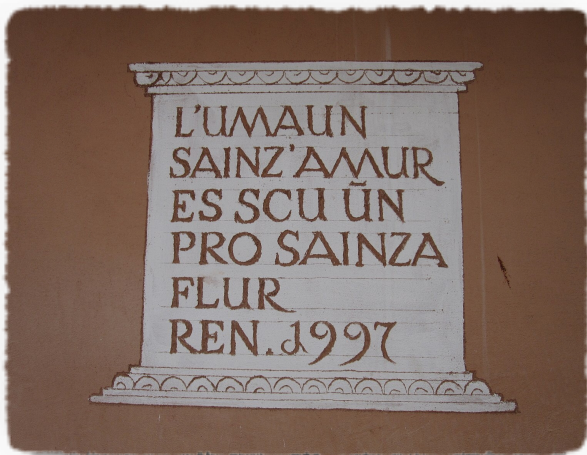 L'UMAUN
SAINZ'AMUR
ES SCU ÜN
PRO SAINZA
FLUR
REN. d 1997